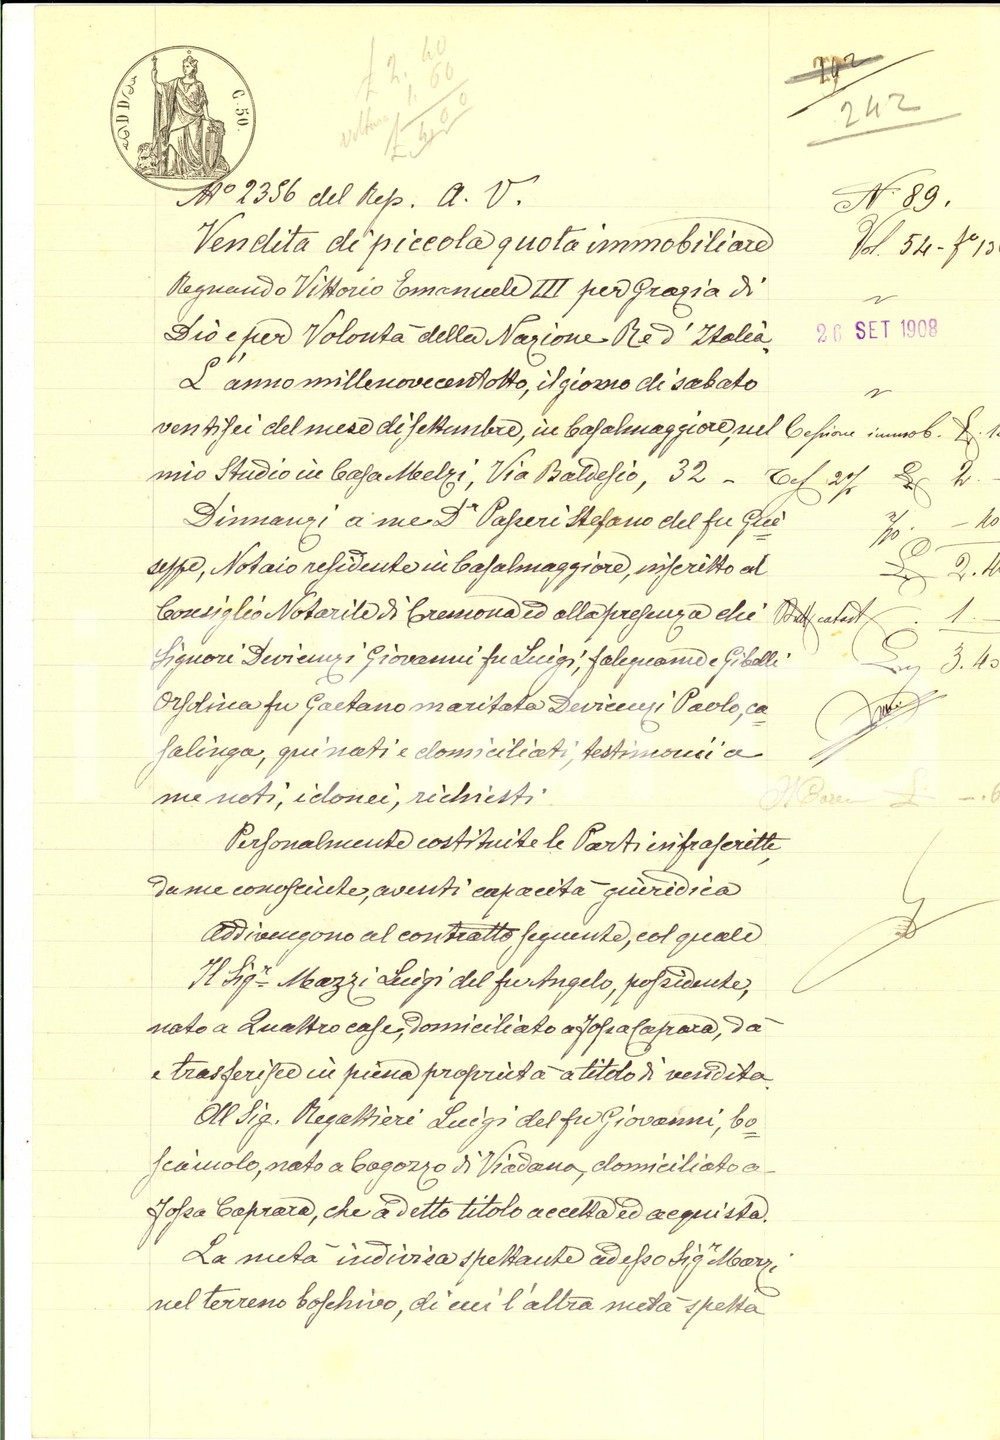 C. 50.
£ 2. 40
1. 60
voltura
£ 4,00
242
Nº 2356 del Rep. A. V.
N. 89.
Vendita di piccola quota immobiliare
Vol. 54 - fº 13
Regnando Vittorio Emanuele III per Grazia di
Dio e per Volontà della Nazione Re d'Italia.
26 SET 1908
L'anno millenovecentotto, il giorno di sabato
ventisei del mese di settembre, in Casalmaggiore, nel
Cessione immob. £.
mio Studio in Casa Melzi, Via Baldesio, 32 -
£ 2. -
Dinnanzi a me Dr Passeri Stefano del fu Giu=
- 40
seppe, Notaio residente in Casalmaggiore, inscritto al
£ 2.4
Consiglio Notarile di Cremona ed alla presenza dei
catast 1. -
Signori Devicenzi Giovanni fu Luigi, falegname e Gibelli
3.40
Orsolina fu Gaetano maritata Devicenzi Paolo, ca=
salinga, qui nati e domiciliati, testimonii a
me noti, idonei, richiesti
Personalmente costituite le Parti infrascritte,
da me conosciute, aventi capacità giuridica
Addivengono al contratto seguente, col quale
Il Sigr Mazzi Luigi del fu Angelo, possidente,
nato a Quattrocase, domiciliato a Fossacaprara, dà
e trasferisce in piena proprietà a titolo di vendita
Al Sig. Regattieri Luigi del fu Giovanni, bo=
scaiuolo, nato a Cogozzo di Viadana, domiciliato a
Fossa Caprara, che a detto titolo accetta ed acquista.
La metà indivisa spettante ad esso Sigr Mazzi
nel terreno boschivo, di cui l'altra metà spetta